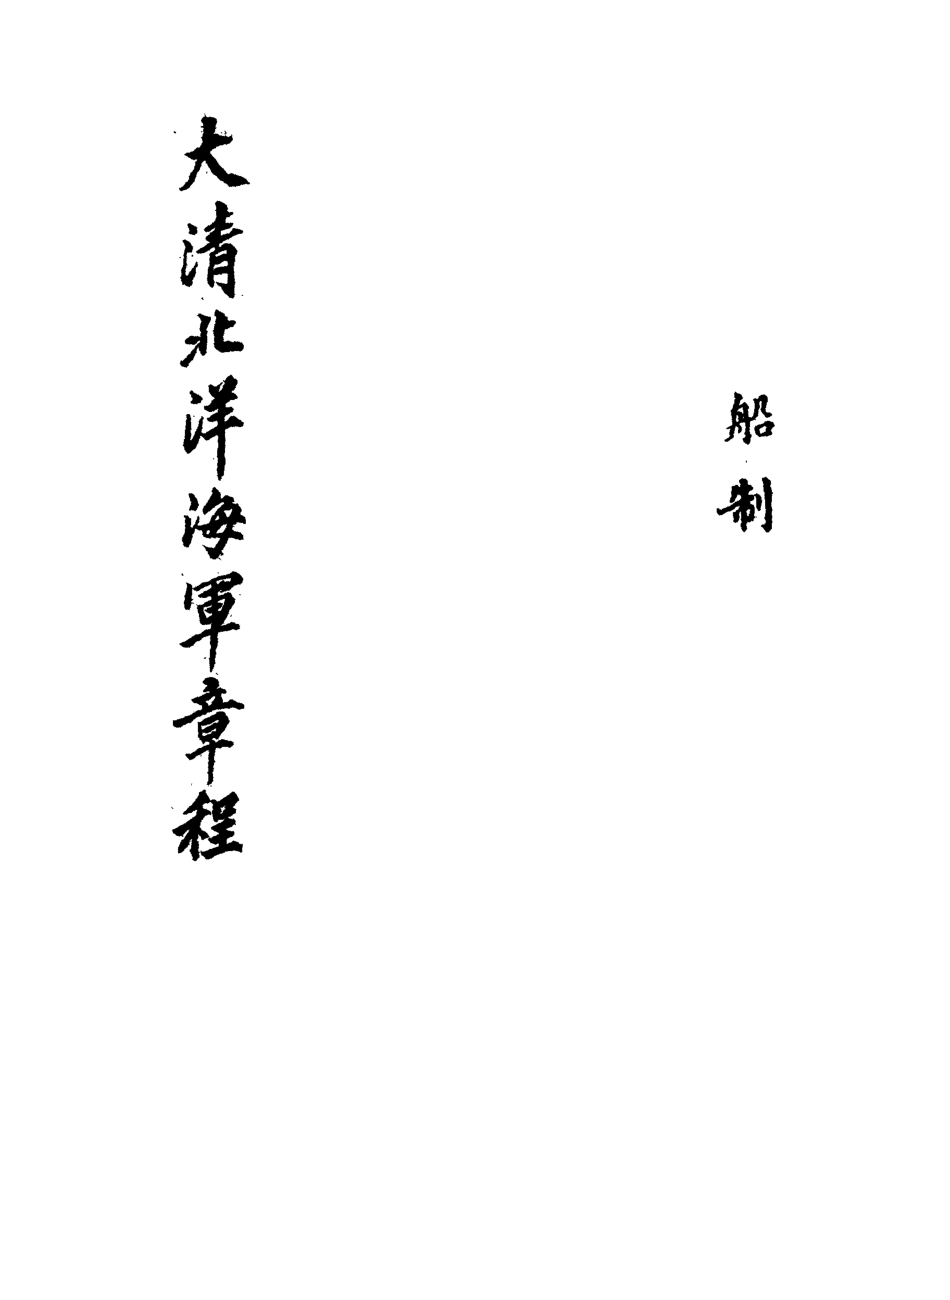 船制
大清北洋海軍章程